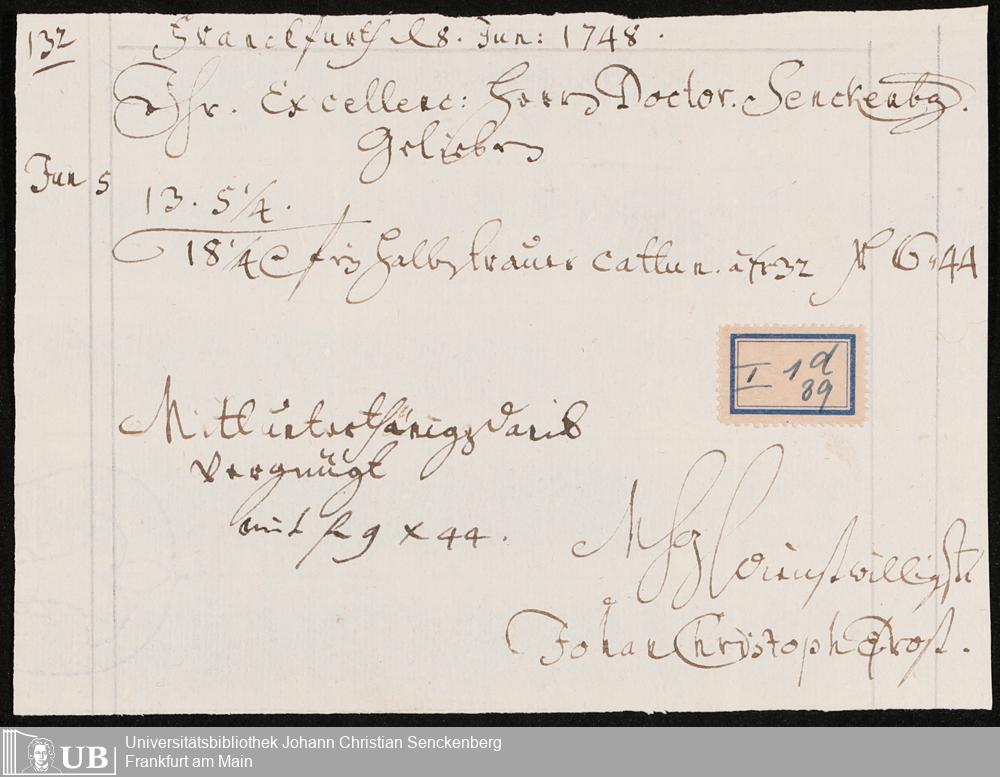 132
Franckfurth d 8. Jun: 1748.
Ihr. Excellenc: Herrn Doctor. Senckenbg.
Belieben
Jun 5
13. 5 1/4.
18 1/4 C frz halb trauer Cattun. a xr 32 fl 6 44
I 1 d
89
Mitt unterthänigs Danck
vergnügt
mit fl 9 x 44.
Dienstwilligst
Johan Christoph Prost.
UB
Universitätsbibliothek Johann Christian Senckenberg
Frankfurt am Main